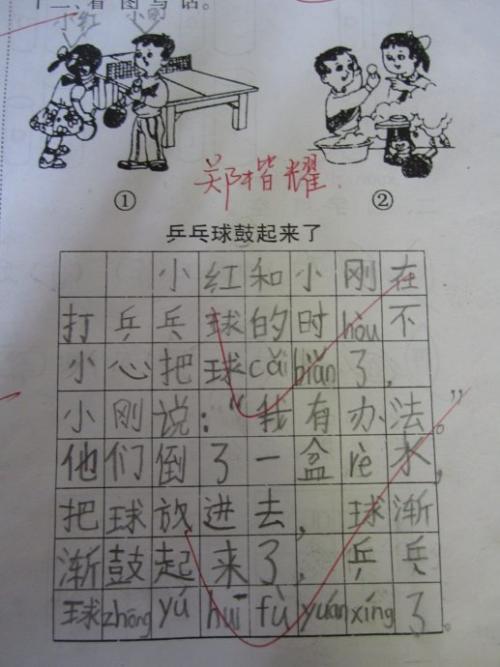 看图写话。
小红 小刚
郑楷耀
① ②
乒乓球鼓起来了
小红和小刚在
打乒乓球的时hòu不
小心把球cǎi biǎn了，
小刚说：“我有办法。”
他们倒了一盆rè水，
把球放进去，球渐
渐鼓起来了，乒乓
球zhōng yú huī fù yuán xíng了。